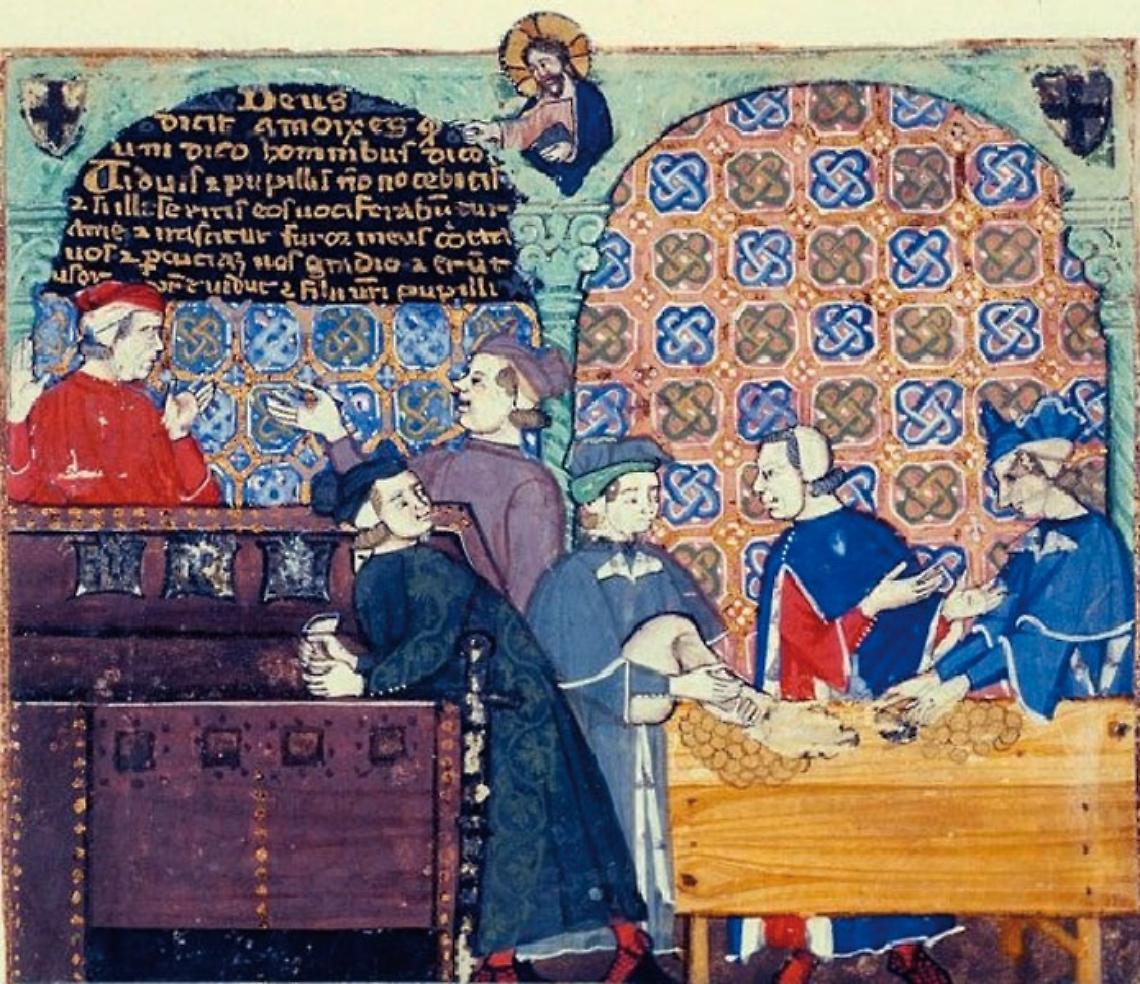 Deus
dicit amoixes q
uni dico hominibus dico
Uiduis ⁊ pupillis nō nocebitis
⁊ si illeseritis eos uociferabūtur
Ame ⁊ irascitur furor meus cōtra
uos ⁊ ꝑcuciā uos gladio ⁊ erūt
ur̄e uidue ⁊ filii ur̄i pupilli